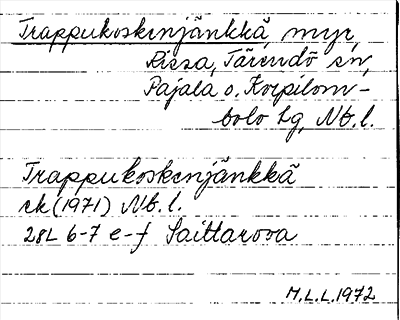 Trappukoskenjänkkä, myr,
Rissa, Tärendö sn,
Pajala o. Korpilom-
bolo tg, Nb. l.
Trappukoskenjänkkä
rk (1971) Nb. l.
28L 6-7 e-f Saittarova
M.L.L. 1972